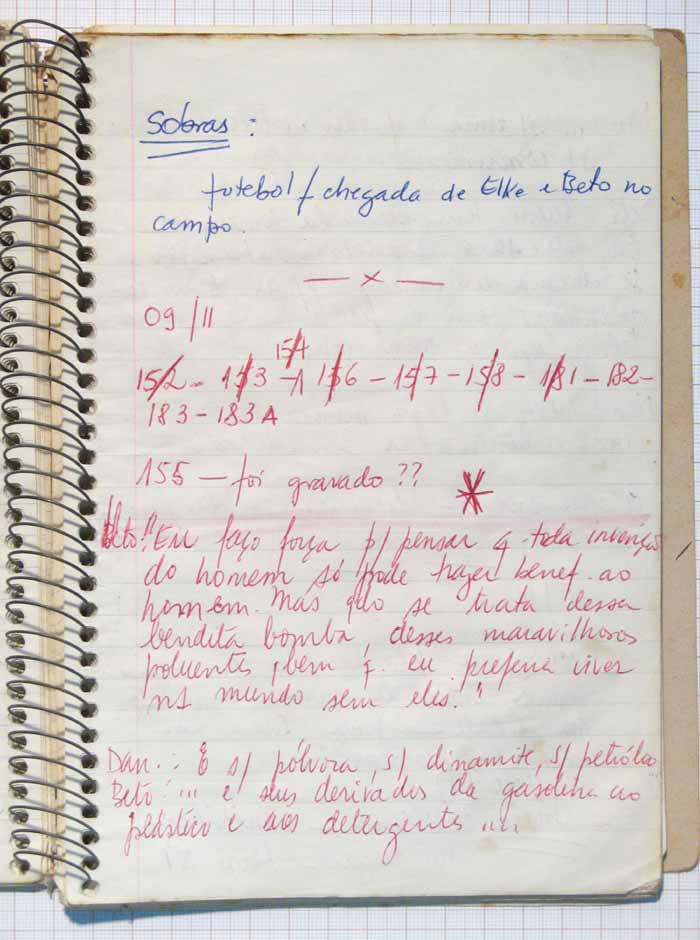 Sobras :
futebol / chegada de Elke e Beto no
campo
— x —
09/11
154
152 - 153 - 156 - 157 - 158 - 181 - 182 -
183 - 183A
155 — foi gravado ??
*
Beto: "Eu faço força p/ pensar q toda invenção
do homem só pode trazer benef. ao
homem. Mas qdo se trata dessa
bendita bomba, desses maravilhosos
poluentes, bem q. eu preferia viver
n1 mundo sem eles."
Dan.: E s/ pólvora, s/ dinamite, s/ petróleo
Beto: ... e seus derivados da gasolina ao
plástico e aos detergentes ....